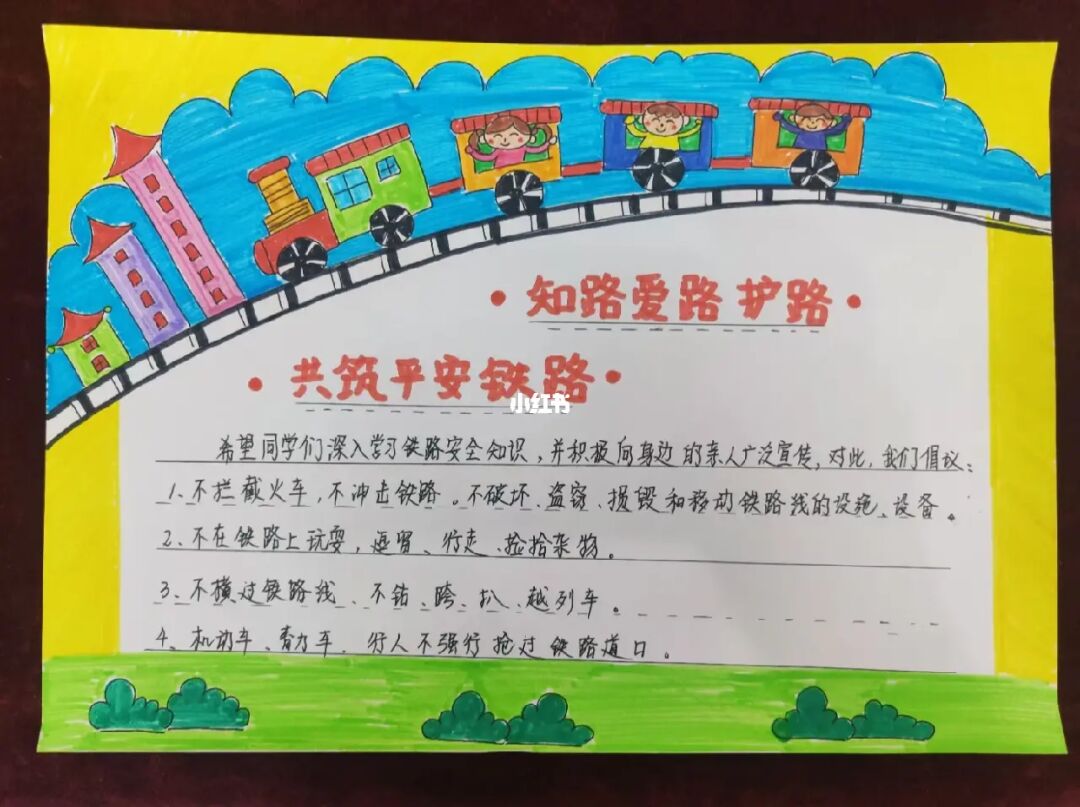 ·知路爱路护路·
·共筑平安铁路·
小红书
希望同学们深入学习铁路安全知识，并积极向身边的亲人广泛宣传，对此，我们倡议：
1、不拦截火车，不冲击铁路。不破坏、盗窃、损毁和移动铁路线的设施、设备。
2、不在铁路上玩耍，逗留、行走、捡拾杂物。
3、不横过铁路线、不钻、跨、扒、越列车。
4、机动车、畜力车、行人不强行抢过铁路道口。